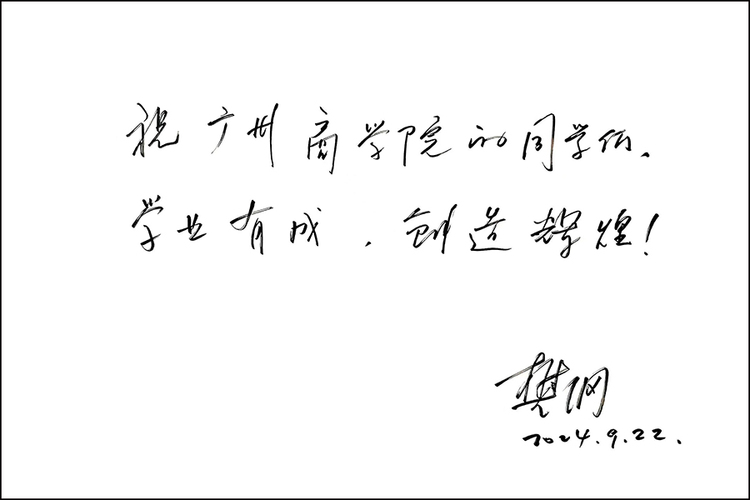 祝广州商学院的同学们，
学业有成，创造辉煌！
樊纲
2024.9.22.